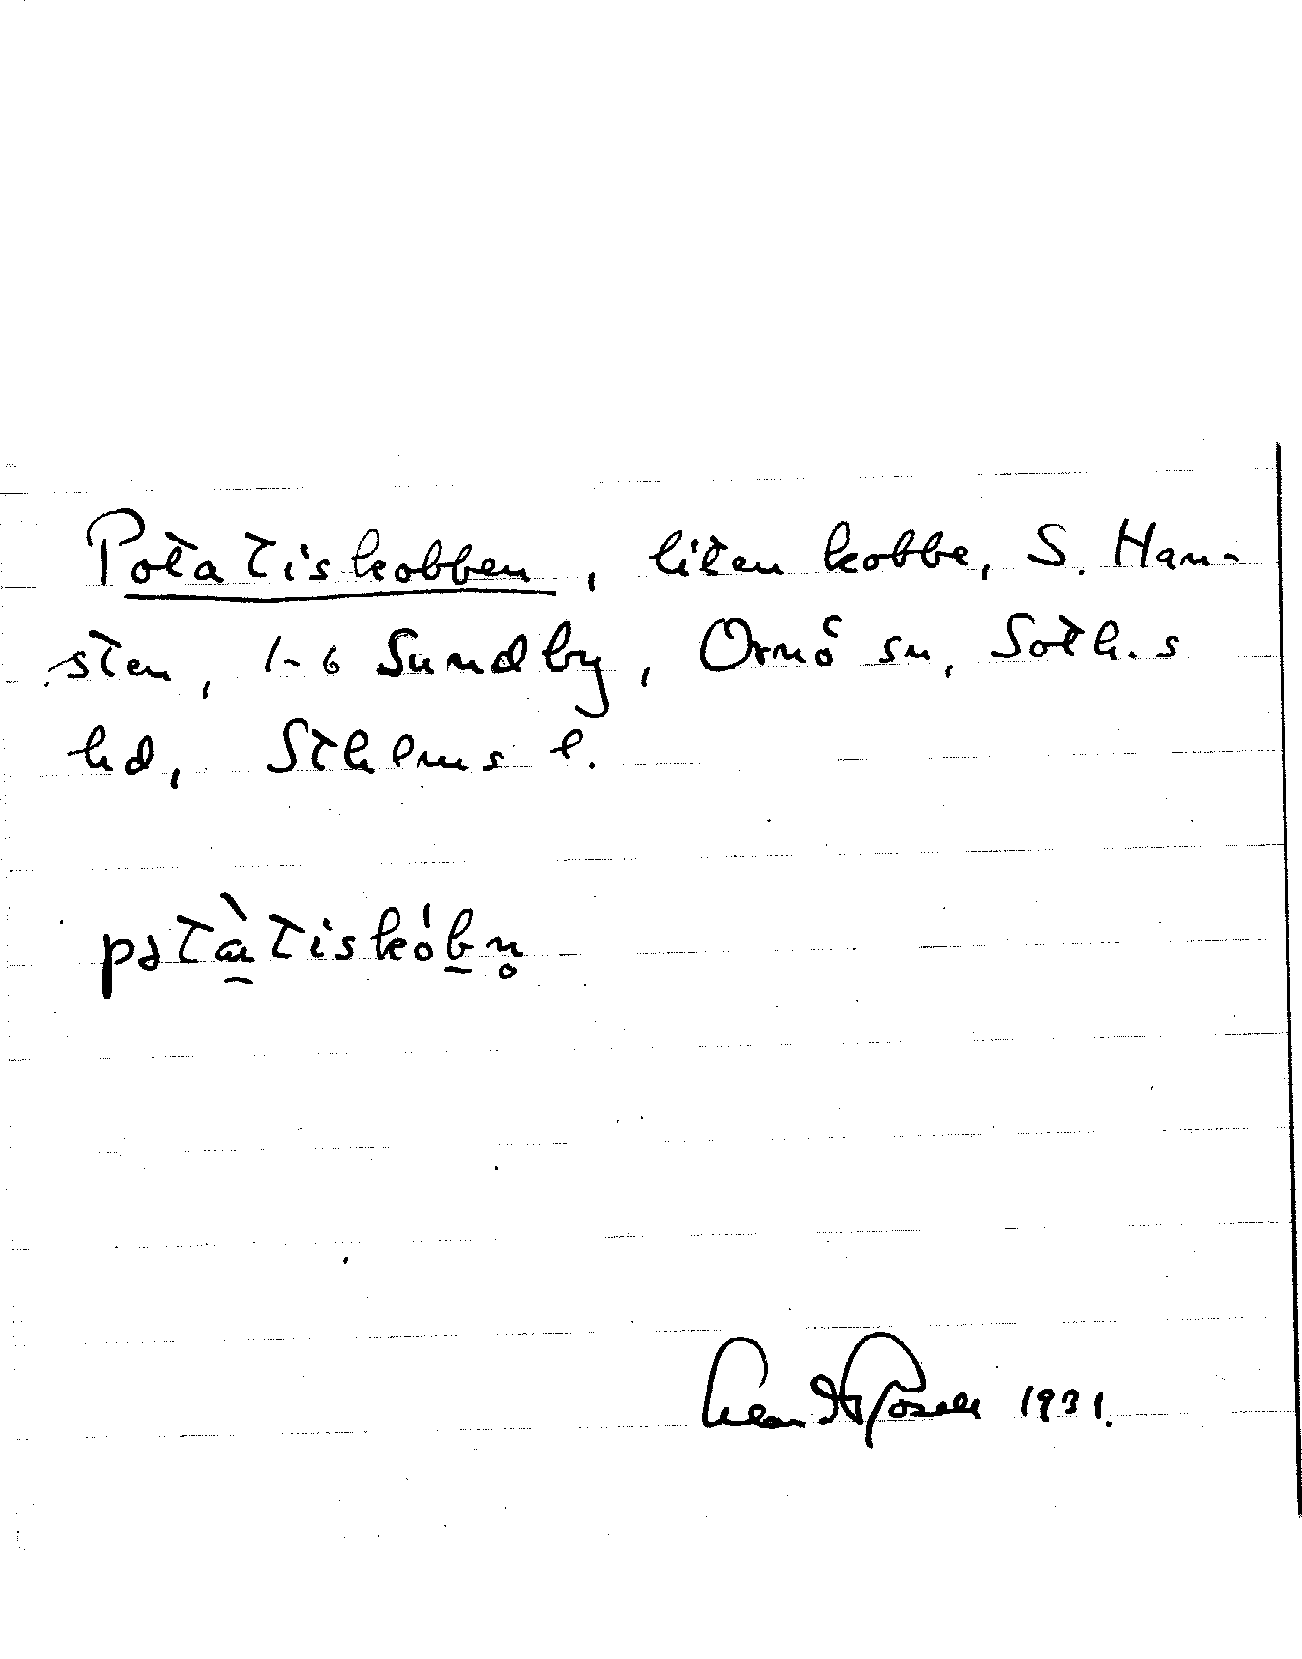 Potatiskobben, liten kobbe, S. Han-
sten, 1-6 Sundby, Ornö sn, Soth.s
hd, Sthlms l.
pətàtiskóbn̥
1931.